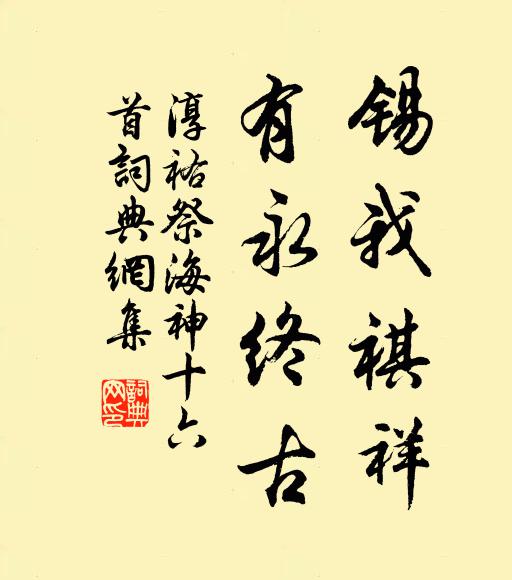 锡我祺祥
有永终古
淳祐祭海神十六
首词典网集
詞典
网印